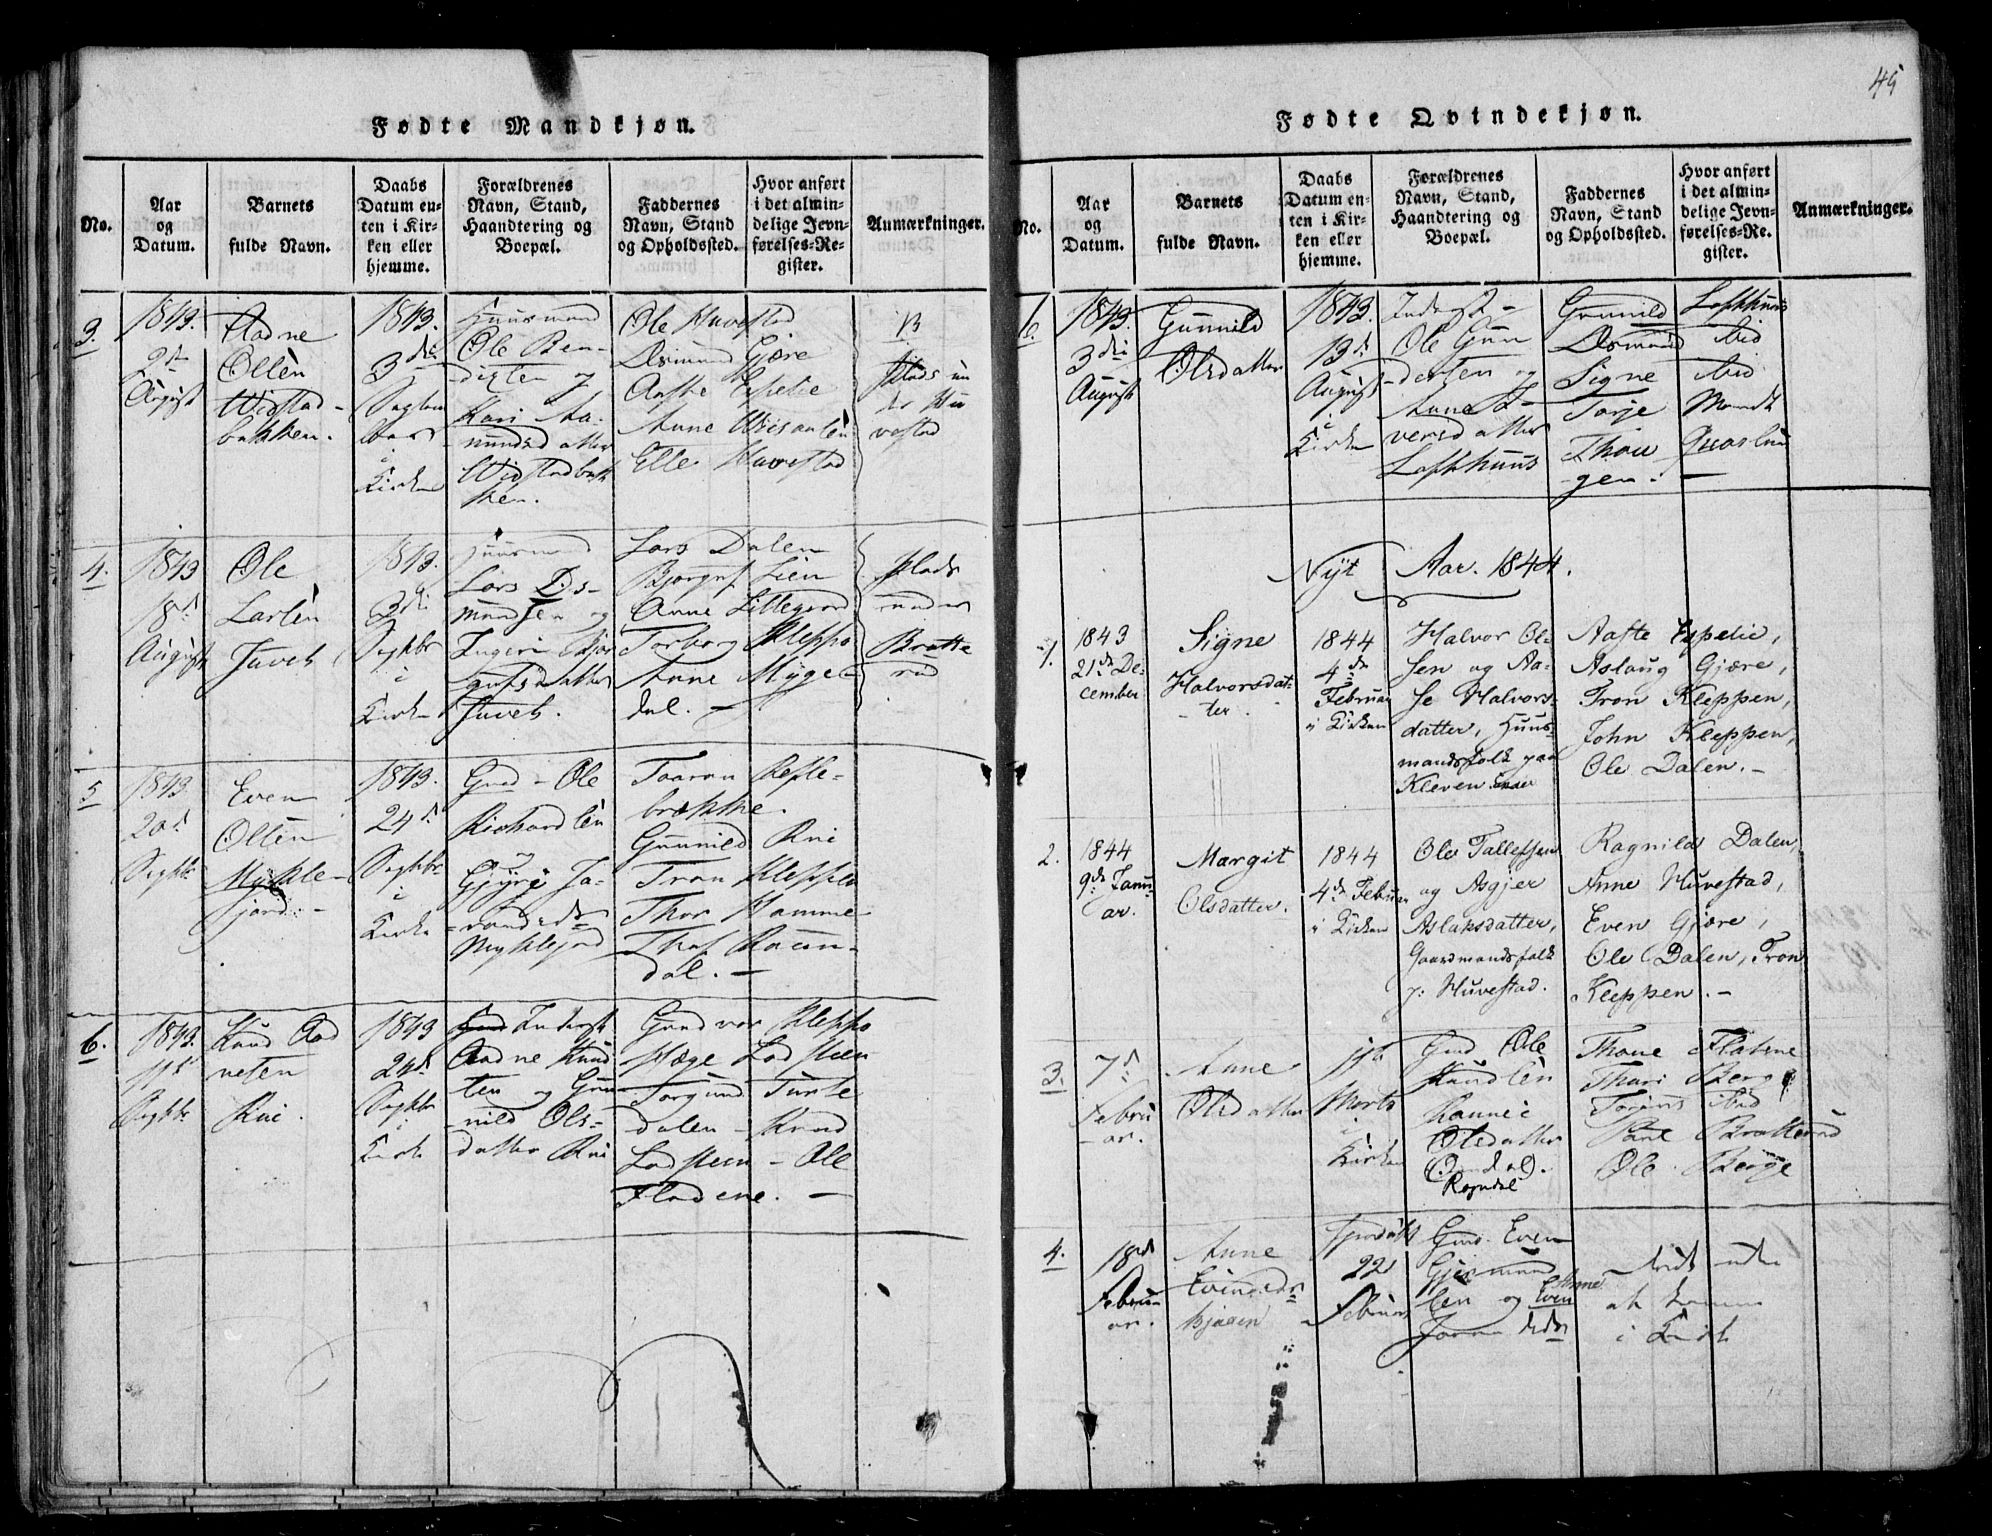 45
Fødte Mandkjøn.
No.
Aar
og
Datum.
Barnets
fulde Navn.
Daabs
Datum en-
ten i Kir-
ken eller
hjemme.
Forældrenes
Navn, Stand,
Haandtering og
Boepæl.
Faddernes
Navn, Stand
og Opholdssted.
Hvor anført
i det almin-
delige Jevn-
førelses-Re-
gister.
Anmærkninger.
3.
1843.
2d
August
Aadne
Olsen
Widstad-
bakken.
1843.
3die
i
Kirken
Huusmand
Ole Ben-
dixsen og
Kari Aa-
mundsdatter
Widstadbak
ken.
Ole Huvestad
Osmund Gjære
Aaste Espelie
Anne
Elle Huvestad
Plads un
der Hu
vestad
4.
1843
18d
August
Ole
Larsen
Juvet
1843.
3die
Septbr
i
Kirken
Huusmand
Lars Os-
mundsen og
Ingeri Bjør
gufsdatter
Juvet.
Lars Dalen
Bjørguf Lien
Anne Lillegaard
Torborg Kleppo
Anne Myge-
dal. -
Plads
under
Bratte
rud
5
1843
20d
Septbr
Even
Olsen
Mykle-
jord. -
1843.
24d
Septbr
i
Kirke
Gmd - Ole
Richardsen
og
Gjyrj Ja-
Myklejord
Taaran Kesle-
brække.
Gunnild Rui
Tron Kleppen
Thor Homme
Raaen-
dal. -
6.
1843.
11d
Septbr
Knud Aad
nesen
Rui.
1843
24d
Septbr
i
Kirke
Inderst
Aadne Knud
sen og Gun
nild Ols-
datter Rui
Gundvor Kleppo
Hæge Ladsteen
Torgund Tveite
dalen - Knud
Ladsteen - Ole
Fladene. -
Fødte Qvindekjøn.
No.
Aar
og
Datum.
Barnets
fulde Navn.
Daabs
Datum en-
ten i Kir-
ken eller
hjemme.
Forældrenes
Navn, Stand,
Haandtering og
Boepæl.
Faddernes
Navn, Stand
og Opholdssted.
Hvor anført
i det almin-
delige Jevn-
førelses-Re-
gister.
Anmærkninger.
16.
1843.
3die
August
Gunnild
Olsdatter
1843.
13d
August
i
Kirken
Inderst -
Ole Gun
dersen og
Anne I-
versdatter
Lofthuus
Gunnild Lofthuus
Osmund ibid
Signe ibid
Torje
Thov
gen. -
Nyt Aar. 1844.
1.
1843
21de De-
cember
Signe
Halvorsdat-
ter.
1844
4de
Februar
i Kirken
Halvor Ol-
sen og Aa-
se Halvors-
datter, Huus-
mandsfolk paa
Kleven
Aaste Espelie,
Aslaug Gjære,
Tron Kleppen,
John Kleppen,
Ole Dalen. -
2.
1844
9de Janu-
ar.
Margit
Olsdatter.
1844
4de Februar
i Kirken
Ole Tallefsen
og Asgjer
Aslaksdatter,
Gaardmandsfolk
p: Huvestad.
Ragnild Dalen,
Anne Huvestad,
Even Gjære,
Ole Dalen, Tron
Kleppen. -
3.
7d
Febru
ar.
Anne
Olsdatter
Marts
i
Kirken
Gmd Ole
Knudsen
Olsdatter
Rogndal
Thone Flatene
Thuri Berge
ibid
Paul Bratterud
Ole Berge
4.
18d
Febru-
ar.
Anne
Evensdr
Bjaaen
22
Februar
Gmd. Even
Gjermund
sen og Anne
Even
at komme